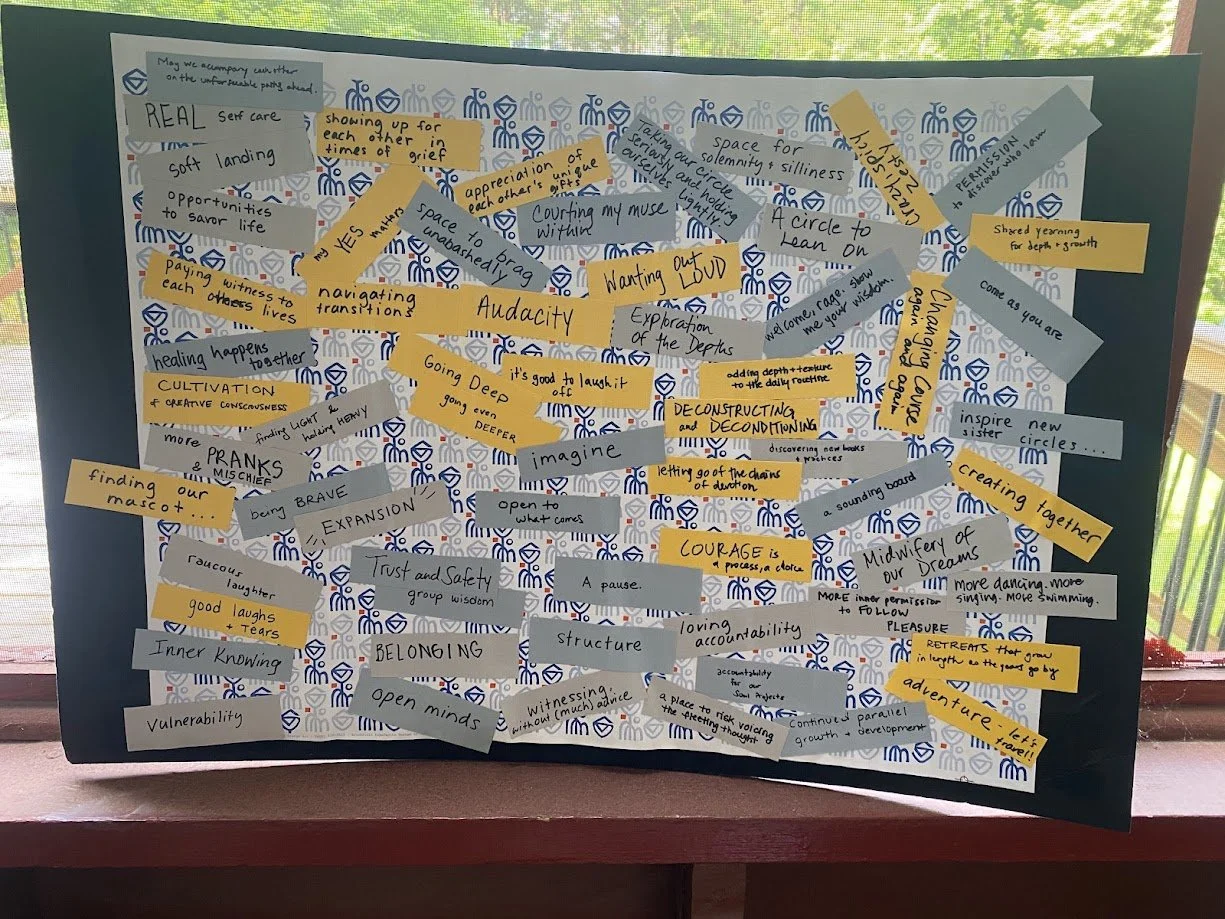 May we accompany each other
on the unforseeable paths ahead.
REAL self care
showing up for
each other in
times of grief
soft landing
appreciation of
each other's unique
gifts
Taking our circle
seriously and holding
ourselves
lightly.
space for
solemnity & silliness
crazysighy
zesty
PERMISSION
to discover who I am
opportunities
to savor life
my YES
matters
space to brag
unabashedly
Courting my muse
within
A circle to
Lean on
Shared yearning
for depth + growth
paying witness to
each others lives
navigating
transitions
Audacity
Wanting Out
LOUD
Exploration
of the Depths
welcome, rage. show
me your wisdom.
Changing Course
again and again
Come as you are
healing happens
together
Going Deep
going even
DEEPER
it's good to laugh it
off
adding depth + texture
to the daily routine
CULTIVATION
of CREATIVE CONSCIOUSNESS
finding LIGHT &
holding HEAVY
DECONSTRUCTING
and DECONDITIONING
inspire new
sister circles...
more
PRANKS
& MISCHIEF
imagine
discovering new books
+ practices
letting go of the chains
of devotion
finding our
mascot...
being BRAVE
EXPANSION
open to
what comes
a sounding board
creating together
COURAGE is
a process, a choice
Midwifery of
our Dreams
raucous
laughter
Trust and Safety
group wisdom
A pause.
more dancing. more
singing. More swimming.
good laughs
+ Tears
MORE inner permission
to FOLLOW
PLEASURE
Inner Knowing
BELONGING
structure
loving
accountability
RETREATS that grow
in length as the years go by
accountability
for our
Soul Projects
adventure - let's
travel!
vulnerability
open minds
witnessing.
without (much) advice
a place to risk voicing
the fleeting thought
Continued parallel
growth + development